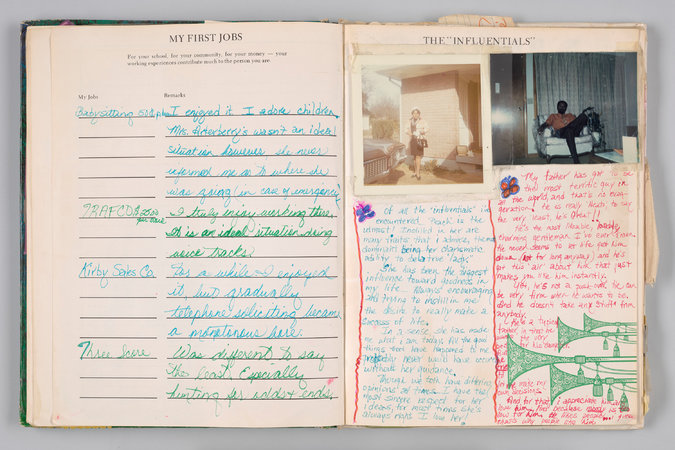 MY FIRST JOBS
For your school, for your community, for your money — your
working experiences contribute much to the person you are.
My Jobs
Remarks
Babysitting I enjoyed it. I adore children.
Mrs. wasn't an ideal
situation, however, she never
informed me as to where she
was going (in case of emergency)
TRAFCO I truly enjoy working there.
It is an ideal situation doing
voice tracks.
Kirby Sales Co. For a while I enjoyed
it, but gradually
telephone soliciting became
a monotonous bore.
Three Score Was different to say
the least. Especially
hunting for odds & ends.
THE "INFLUENTIALS"
Of all the "influentials" I've
encountered, is the
utmost! Instilled in her are
many traits that I admire, the most
dominant being her
ability to be a true "lady."
She has been the biggest
influence toward goodness in
my life. Always encouraging
and trying to instill in me
the desire to really make a
success of life.
In a sense, she has made
me what I am today. All the good
things that have happened to me
probably never would have occurred
without her guidance.
Though we both have differing
opinions at times, I have the
most sincere respect for her
ideas, for most times she's
always right. I love her!
My father has got to be
the most terrific guy in
the world, and that's no exag-
geration! He so really heads, to say
the very least, he's Great!!
He's the most likeable,
charming gentleman I've ever known.
He never seems to let life get him
down, not for long anyway and he's
got this air about him that just
makes you like him instantly.
Yet, he's not a push-over. He can
be very firm when he wants to be,
and he doesn't take any stuff from
anybody.
He's a
father in that he
the very
for his daughter.
let me make my
own decisions.
And for that I appreciate him and
love him. And because
love for him. He likes people...I guess
that's why people like him.